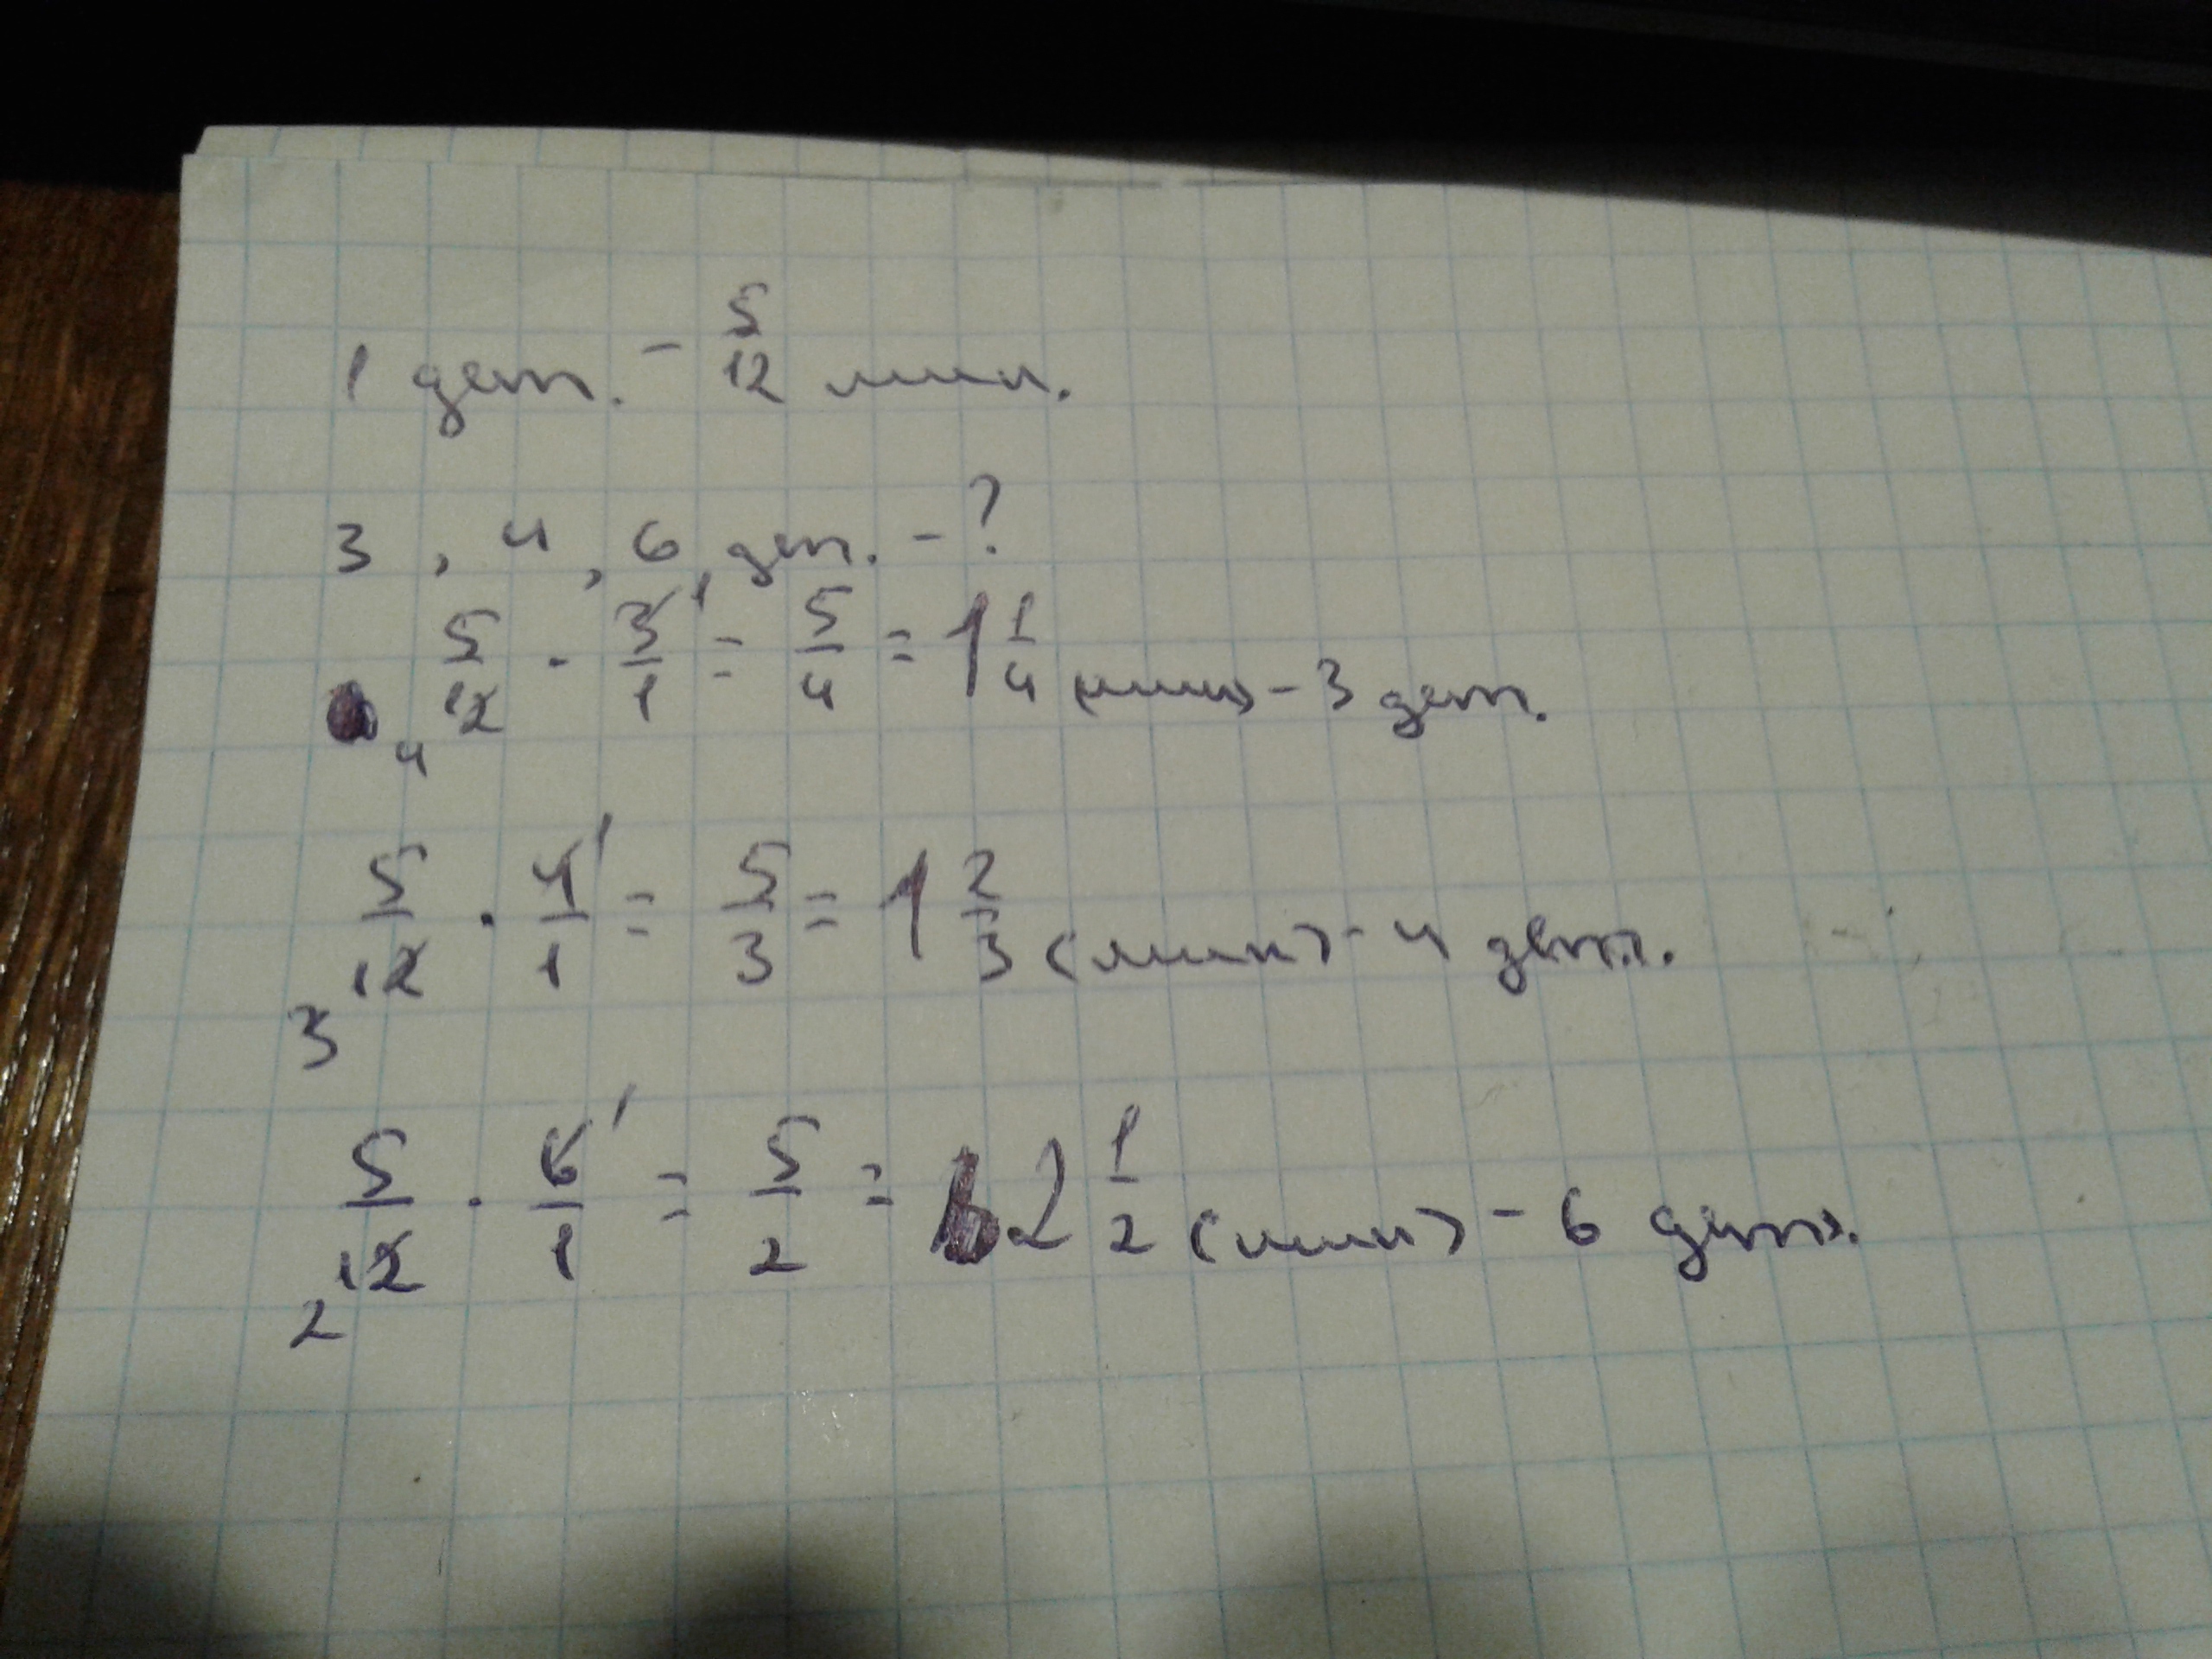 1 дет. - 5/12 мин.
3, 4, 6 дет. - ?
5/12 · 3/1 = 5/4 = 1 1/4 (мин) - 3 дет.
5/12 · 4/1 = 5/3 = 1 2/3 (мин) - 4 дет.
5/12 · 6/1 = 5/2 = 2 1/2 (мин) - 6 дет.